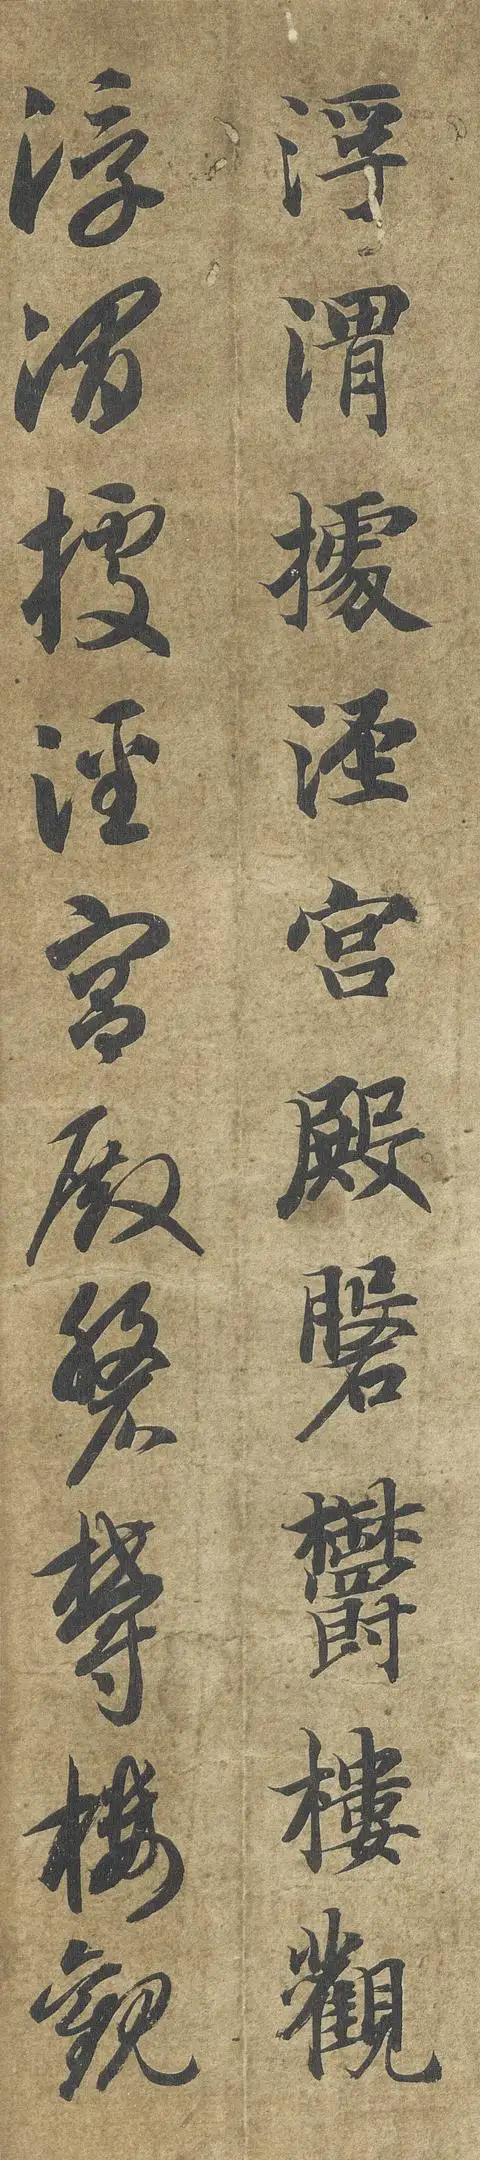 浮渭據涇宮殿磐鬱樓觀
浮渭據涇宮殿磐鬱樓觀